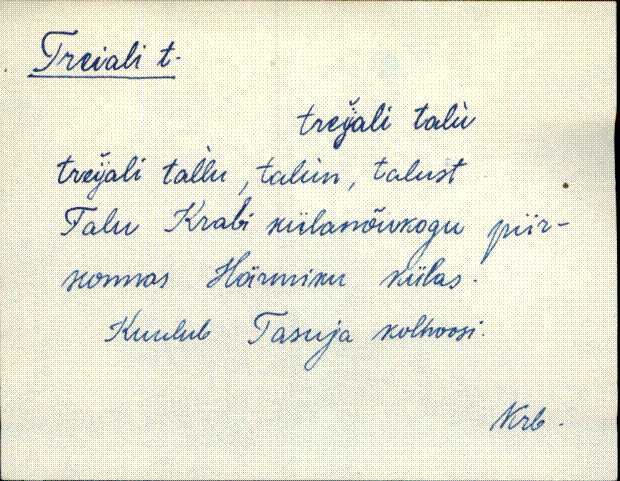 Treiali t.
treĭjali talù
treĭjali tal̀lu, talùn, talust
Talu Krabi külanõukogu piir-
konnas Härmiku külas.
Kuulub Tasuja kolhoosi.
Krb.